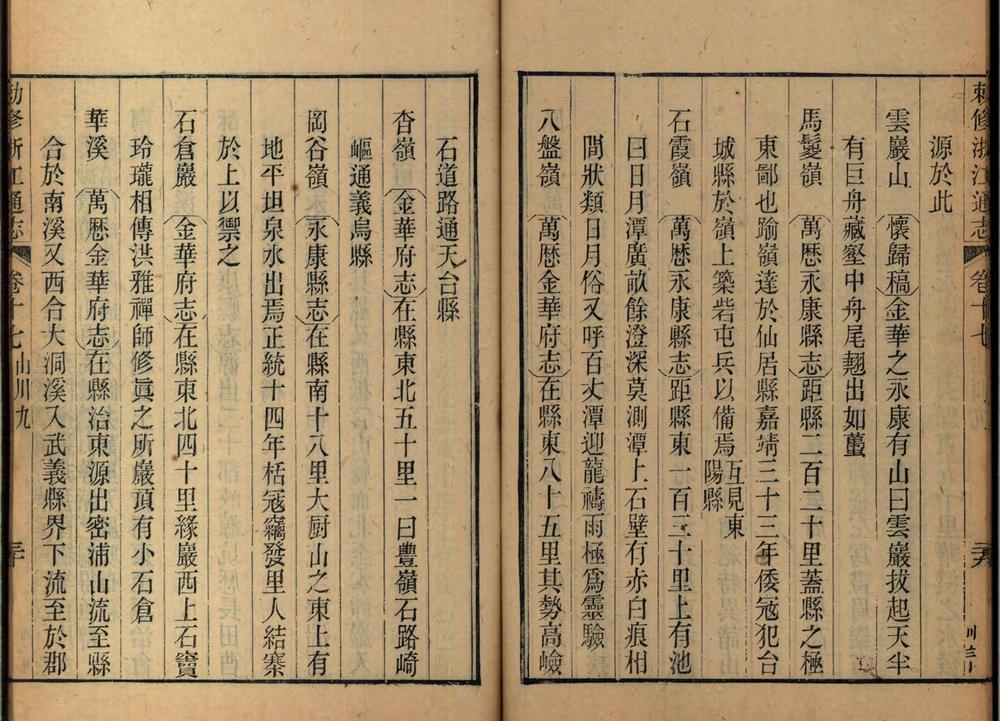 敕修浙江通志 卷十七
源於此
雲巖山 懷歸稿金華之永康有山曰雲巖拔起天半
有巨舟藏壑中舟尾翹出如蠆
馬鬉嶺 萬歷永康縣志距縣二百二十里蓋縣之極
東鄙也踰嶺達於仙居縣嘉靖三十三年倭冦犯台
城縣於嶺上築砦屯兵以備焉互見東陽縣
石霞嶺 萬歷永康縣志距縣東一百三十里上有池
曰日月潭廣畝餘澄深莫測潭上石壁有赤白痕相
間狀類日月俗又呼百丈潭迎龍禱雨極爲靈驗
八盤嶺 萬歷金華府志在縣東八十五里其勢高嶮
石道路通天台縣
杳嶺 金華府志在縣東北五十里一曰豐嶺石路崎
嶇通義烏縣
岡谷嶺 永康縣志在縣南十八里大厨山之東上有
地平坦泉水出焉正統十四年栝冦竊發里人結寨
於上以禦之
石倉巖 金華府志在縣東北四十里緣巖西上石竇
玲瓏相傳洪雅禪師修眞之所巖頂有小石倉
華溪 萬歷金華府志在縣治東源出密浦山流至縣
合於南溪又西合大洞溪入武義縣界下流至於郡
敕修浙江通志 卷十七 山川九 三十